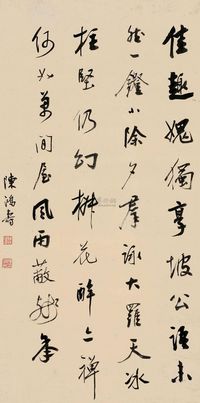 佳趣媿獨享坡公語未
然一鐙小除夕群詠大羅天冰
柱堅仍幻㮈花醉亦禪
何如萬間屋風雨蔽殘年
陳鴻壽